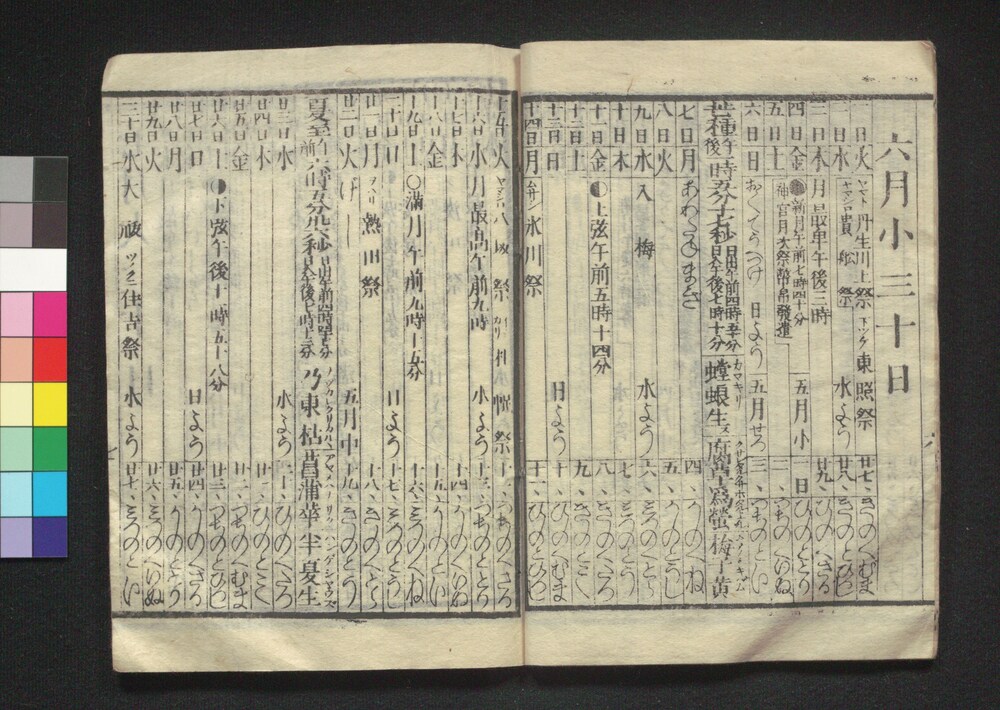 六月小三十日
一日火 ヤマト 丹生川上祭 下ツケ 東照祭 廿七、きのへむま
二日水 ヤマシロ 貴舩祭 水よう 廿八、きのとひつし
三日木 月最卑午後三時 廿九、ひのへさる
四日金 新月午前七時四十分 五月小 一日 ひのととり
五日土 神宮月次祭幣帛發遣 二、つちのへいぬ
六日日 日よう 五月せつ 三、つちのとい
芒種午後 時五分十七秒 日出午前四時五十分 日入午後七時十分 カマキリ 螳螂生ス 腐草為螢 梅子黄
七日月 四、かのへね
八日火 五、かのとうし
九日水 入梅 水よう 六、みつのへとら
十日木 七、みつのとう
十一日金 上弦午前五時十四分 八、きのへたつ
十二日土 九、きのとみ
十三日日 日よう 十、ひのへむま
十四日月 ムサシ 氷川祭 十一、ひのとひつし
十五日火 ヤマシロ 八坂祭 十二、つちのへさる
十六日水 月最高午前九時 水よう 十三、つちのととり
十七日木 十四、かのへいぬ
十八日金 十五、かのとい
十九日土 満月午前九時十五分 十六、みつのへね
二十日日 日よう 十七、みつのとうし
廿一日月 ヲハリ 熱田祭 十八、きのへとら
廿二日火 げし 五月中 十九、きのとう
夏至午前 時五分 秒 日出午前四時 分 日入午後七時 分 乃東枯 菖蒲華 半夏生
廿三日水 水よう 二十、ひのへたつ
廿四日木 廿一、ひのとみ
廿五日金 廿二、つちのへむま
廿六日土 下弦午後十一時五十八分 廿三、つちのとひつし
廿七日日 日よう 廿四、かのへさる
廿八日月 廿五、かのととり
廿九日火 廿六、みつのへいぬ
三十日水 大祓 住吉祭 水よう 廿七、みつのとい